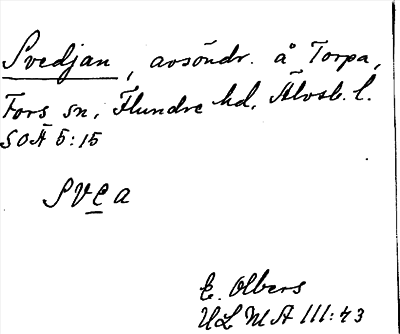 Svedjan, avsöndr. å Torpa,
Fors sn, Flundre hd, Älvsb. l.
SOÄ 5:15
SVea
E. Olbers
ULMA 111:43